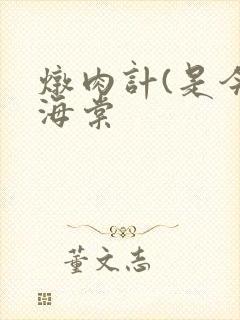 燉肉計(是今
海棠
董文志